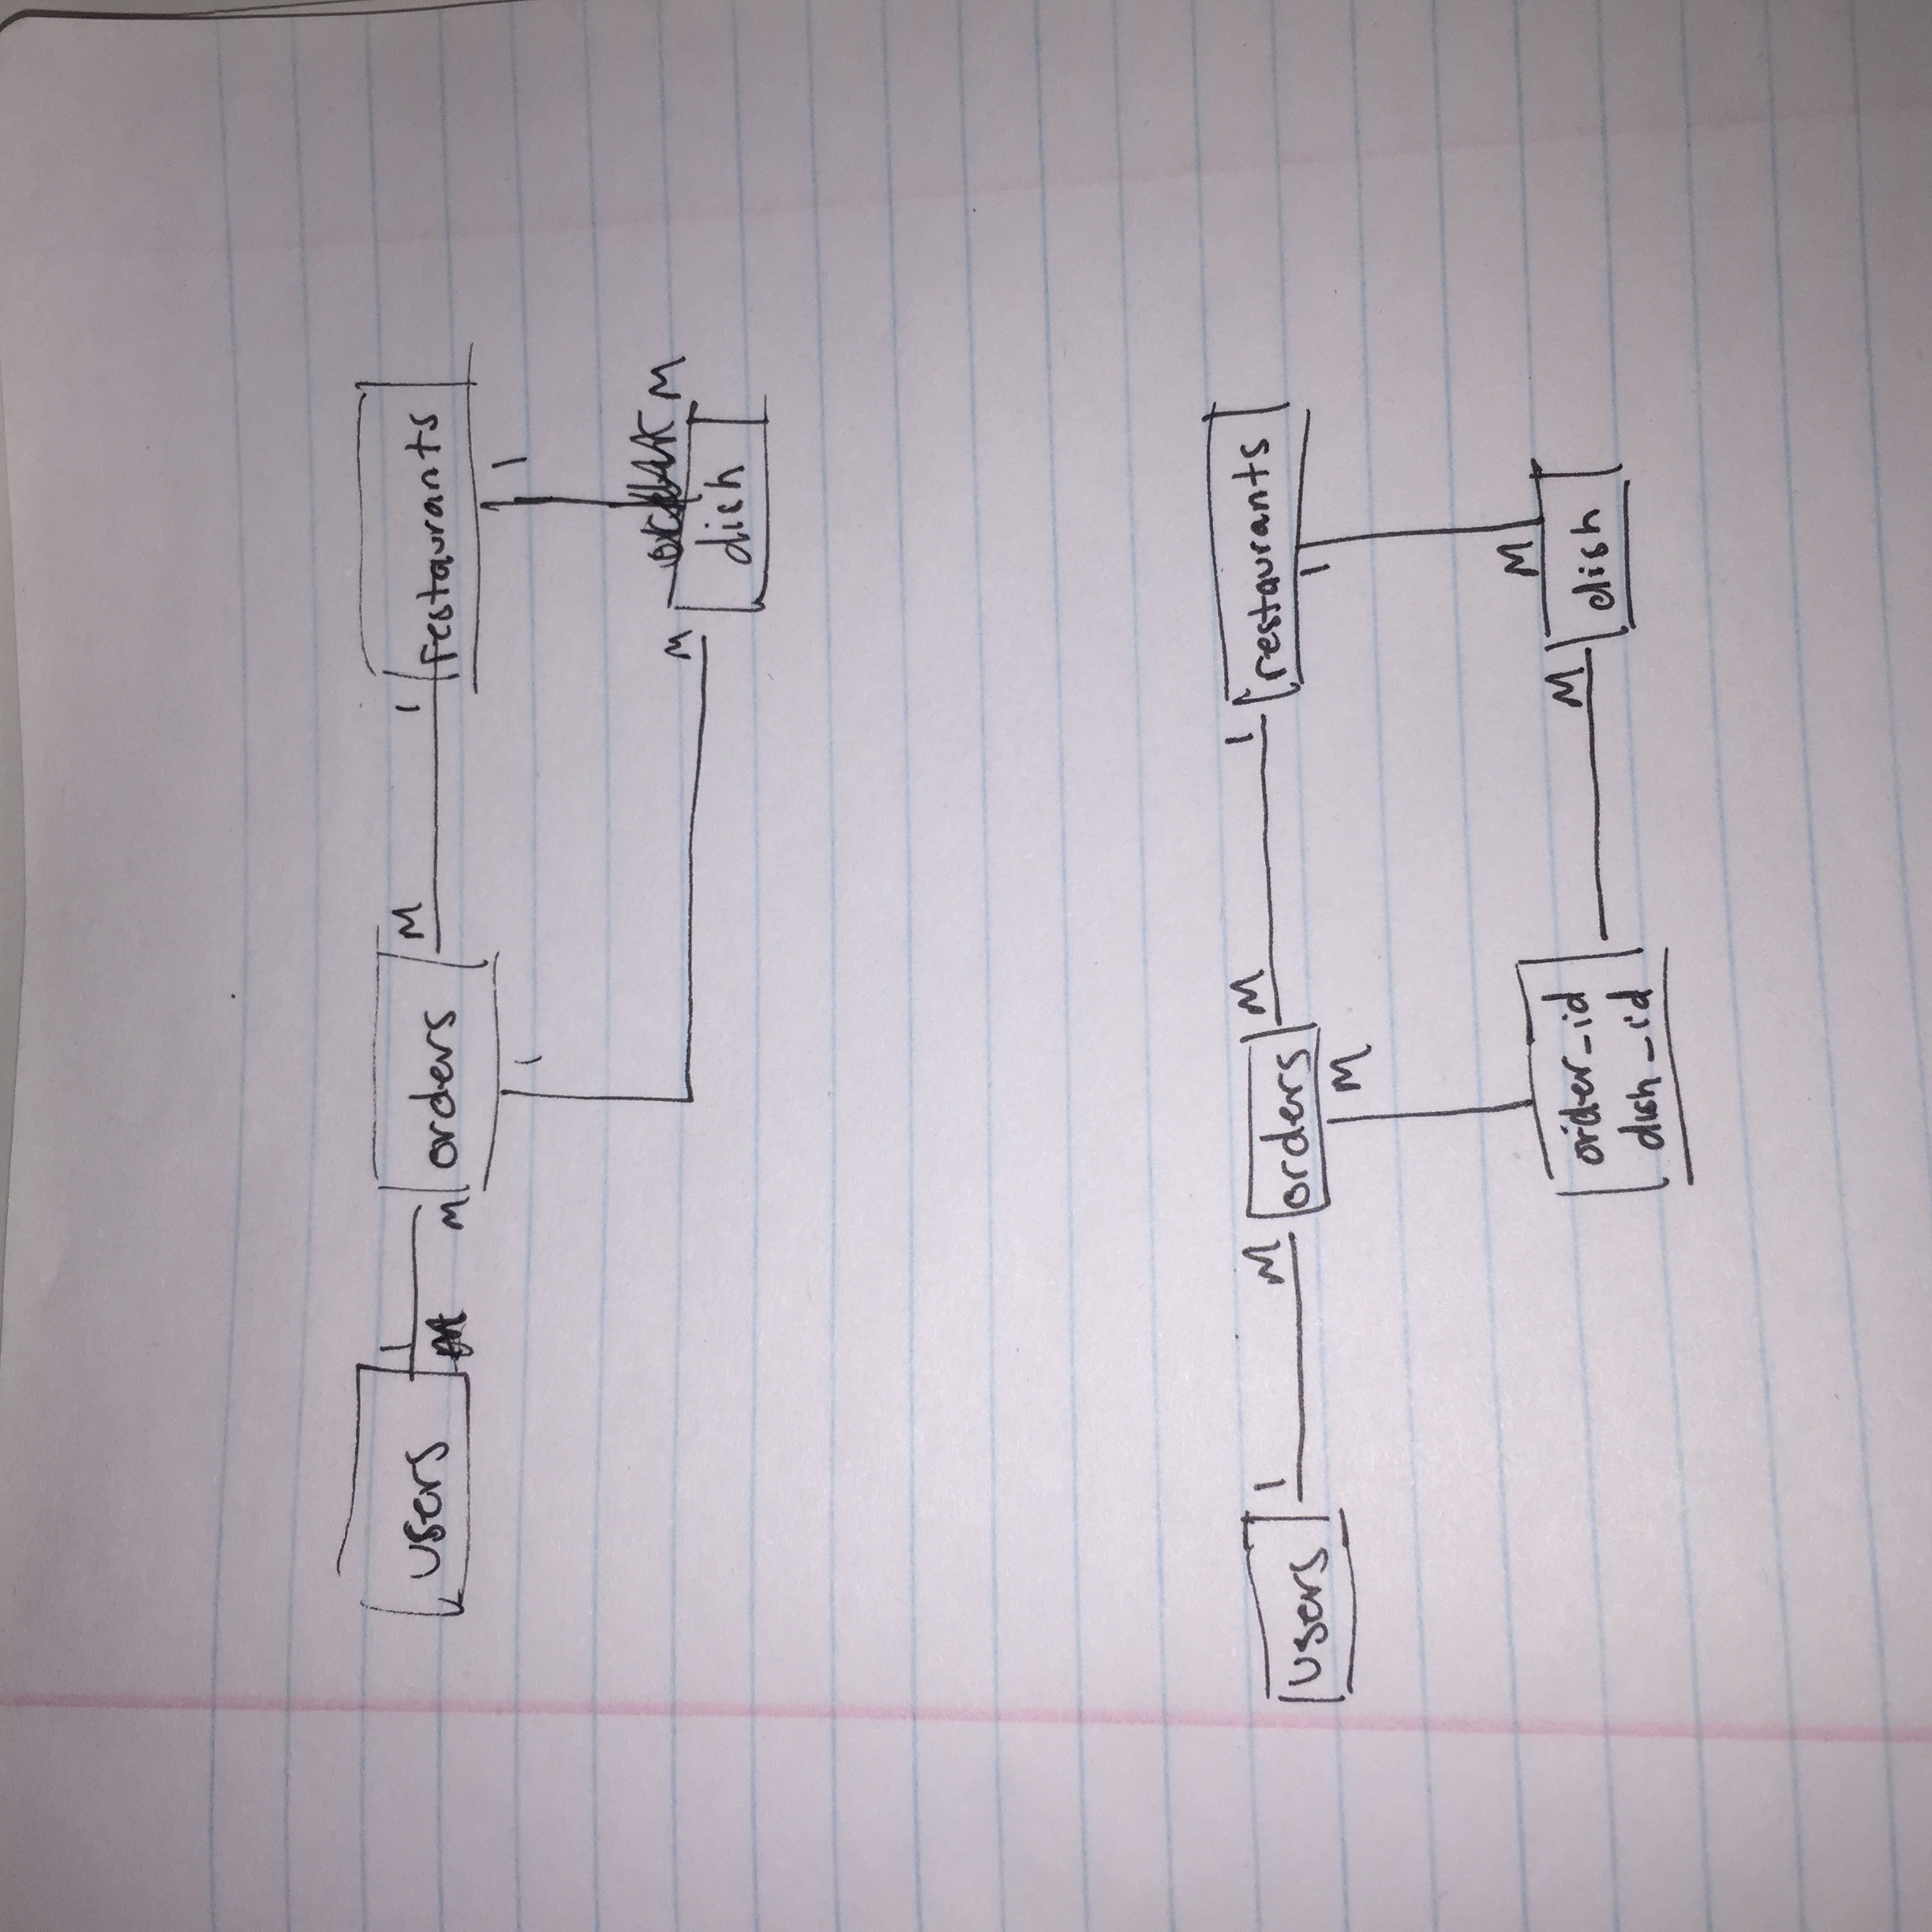 users 1 M orders M 1 restaurants
1 1
M M
dish
users 1 M orders M 1 restaurants
M 1
M
order_id M dish
dish_id